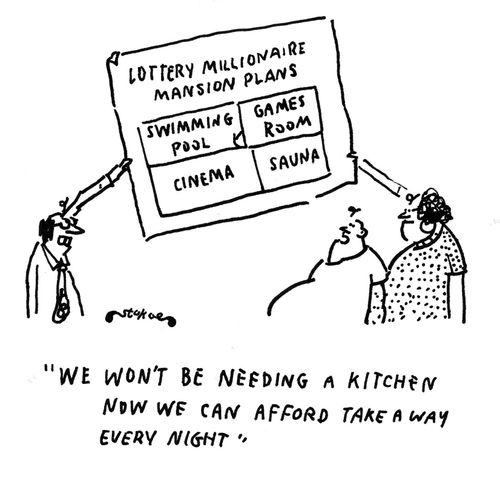 LOTTERY MILLIONAIRE
MANSION PLANS
SWIMMING
POOL
GAMES
ROOM
CINEMA
SAUNA
Stokoe
"WE WON'T BE NEEDING A KITCHEN
NOW WE CAN AFFORD TAKE A WAY
EVERY NIGHT"